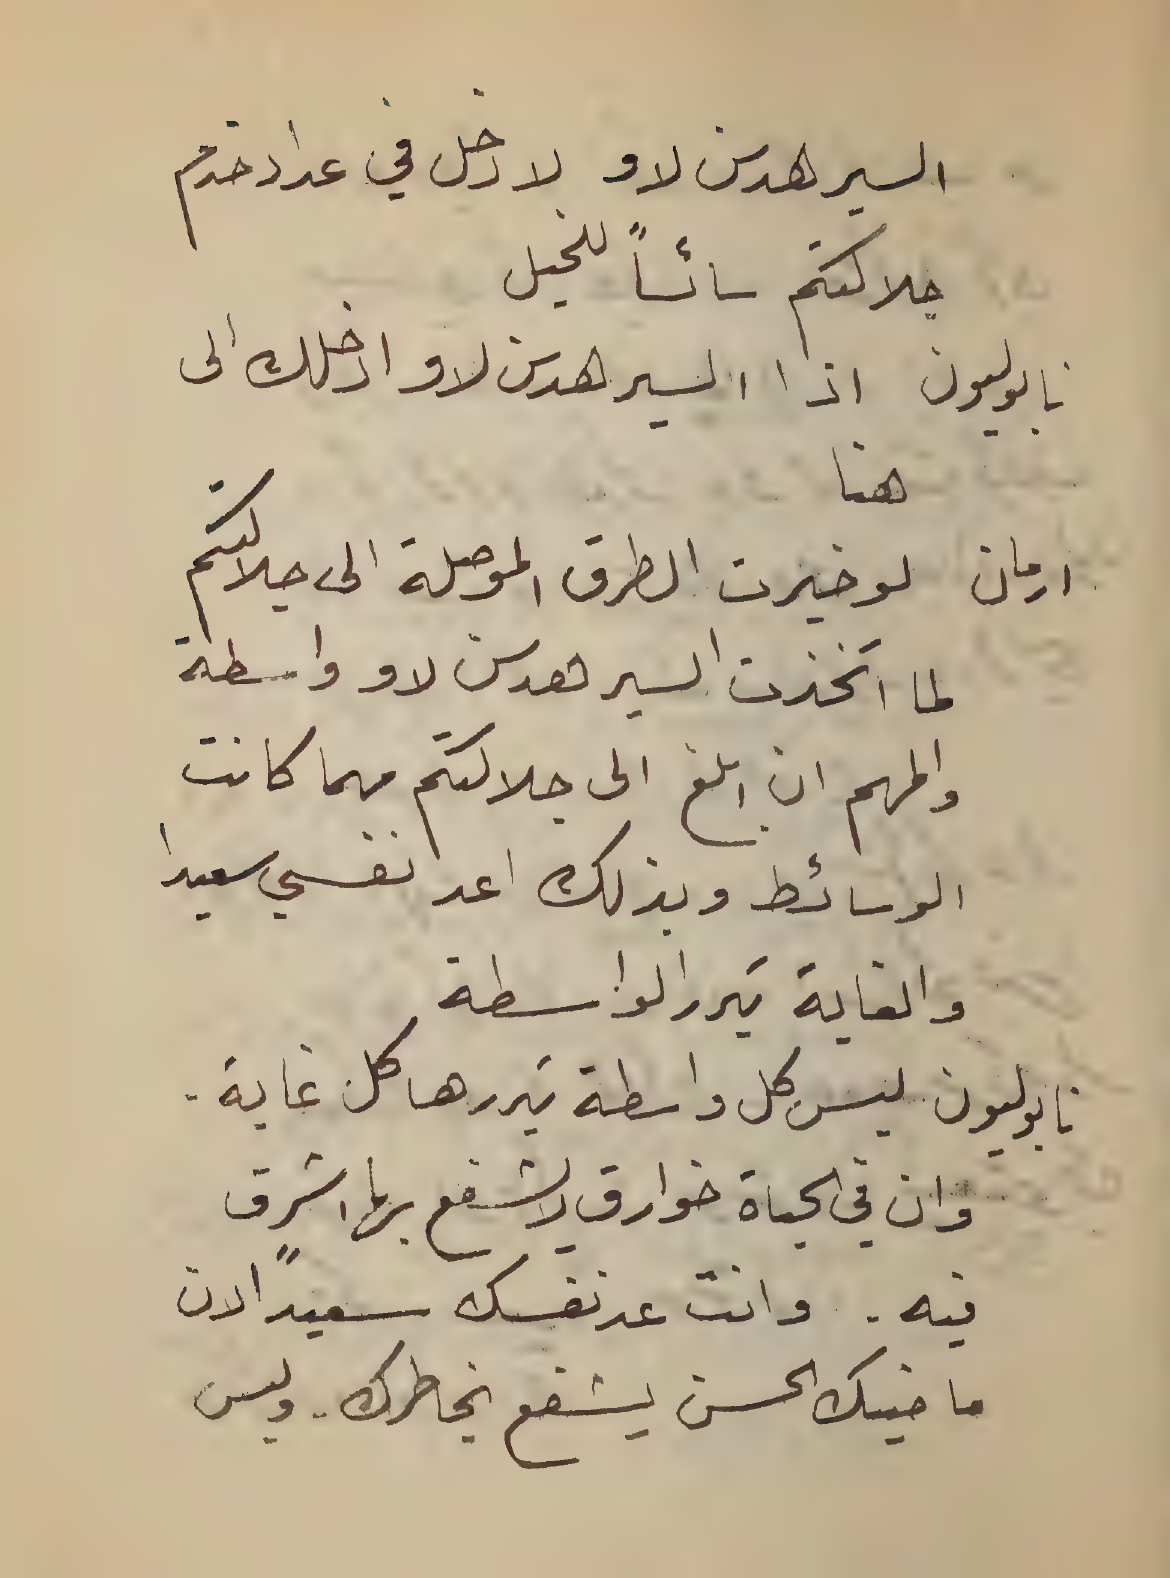 السير هدسن لاو لادخل في عداد خدم
جلالتكم سائساً للخيل
نابوليون اذا السير هدسن لاو ادخلك الى
هنا
ارمان لو خيرت الطرق الموصلة الى جلالتكم
لما اتخذت السير هدسن لاو واسطة
والمهم ان ابلغ الى جلالتكم مهما كانت
الوسائط وبذلك اعد نفسي سعيدا
والغاية تبرر الواسطة
نابوليون ليس كل واسطة تبررها كل غاية .
وان في الحياة خوارق لا يشفع بها شرق
فيه . وانت عد نفسك سعيداً الان
ماضيك الحسن يشفع بخاطرك . وليس